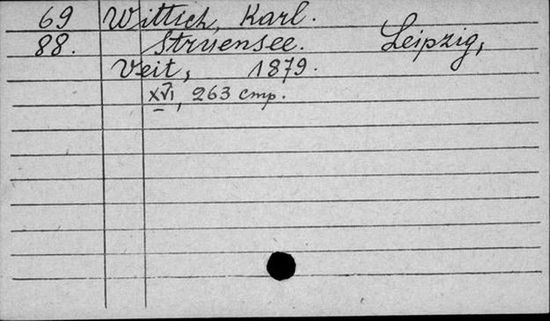 69 Wittich, Karl.
88. Struensee. Leipzig,
Veit, 1879.
XVI, 263 стр.